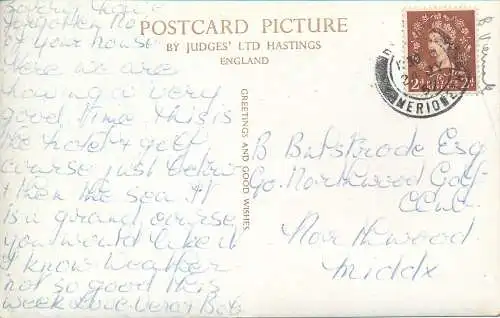 Sorry have
forgotten No
of your house
Here we are
having a very
good time this is
the hotel & golf
course just below
& then the sea. It
is a grand course
you would like it
I know weather
not so good this
week Love Vera & Bob
POSTCARD PICTURE
BY JUDGES' LTD HASTINGS
ENGLAND
GREETINGS AND GOOD WISHES
MERIONE
2D 2D
B Bulstrode Esq
Co. Northwood Golf
Club
Northwood
Middx